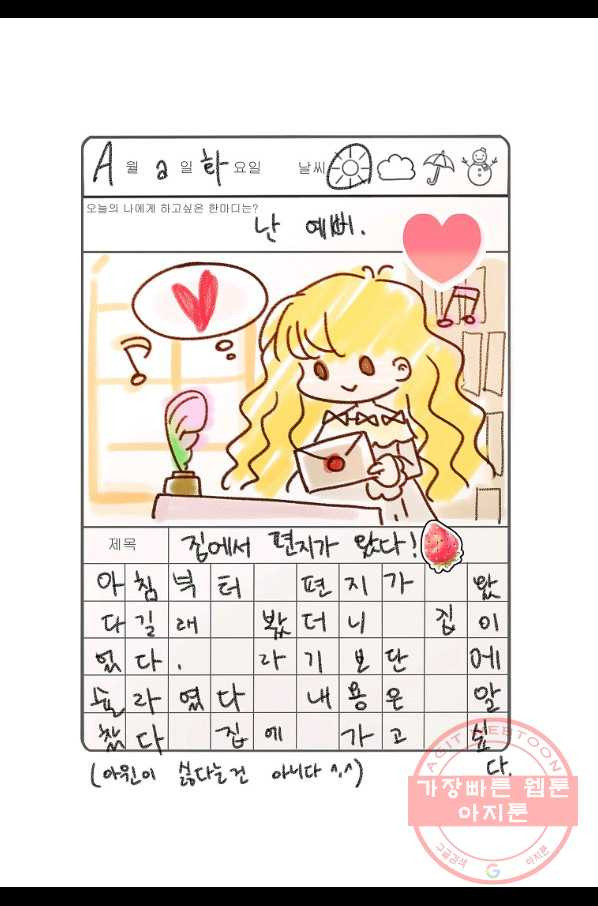 A 월 a 일 화 요일 날씨
오늘의 나에게 하고싶은 한마디는?
난 예뻐.
제목 집에서 편지가 왔다!
아침 녁터 편지가 왔
다길래 봤더니 집이
었다. 라기보단 에
세라였다 내용은 알
찼다 집에 가고 싶
다.
(아원이 싫다는건 아니다 ^.^)
AGIT WEBTOON
가장빠른 웹툰
아지툰
구글검색 G 아지툰